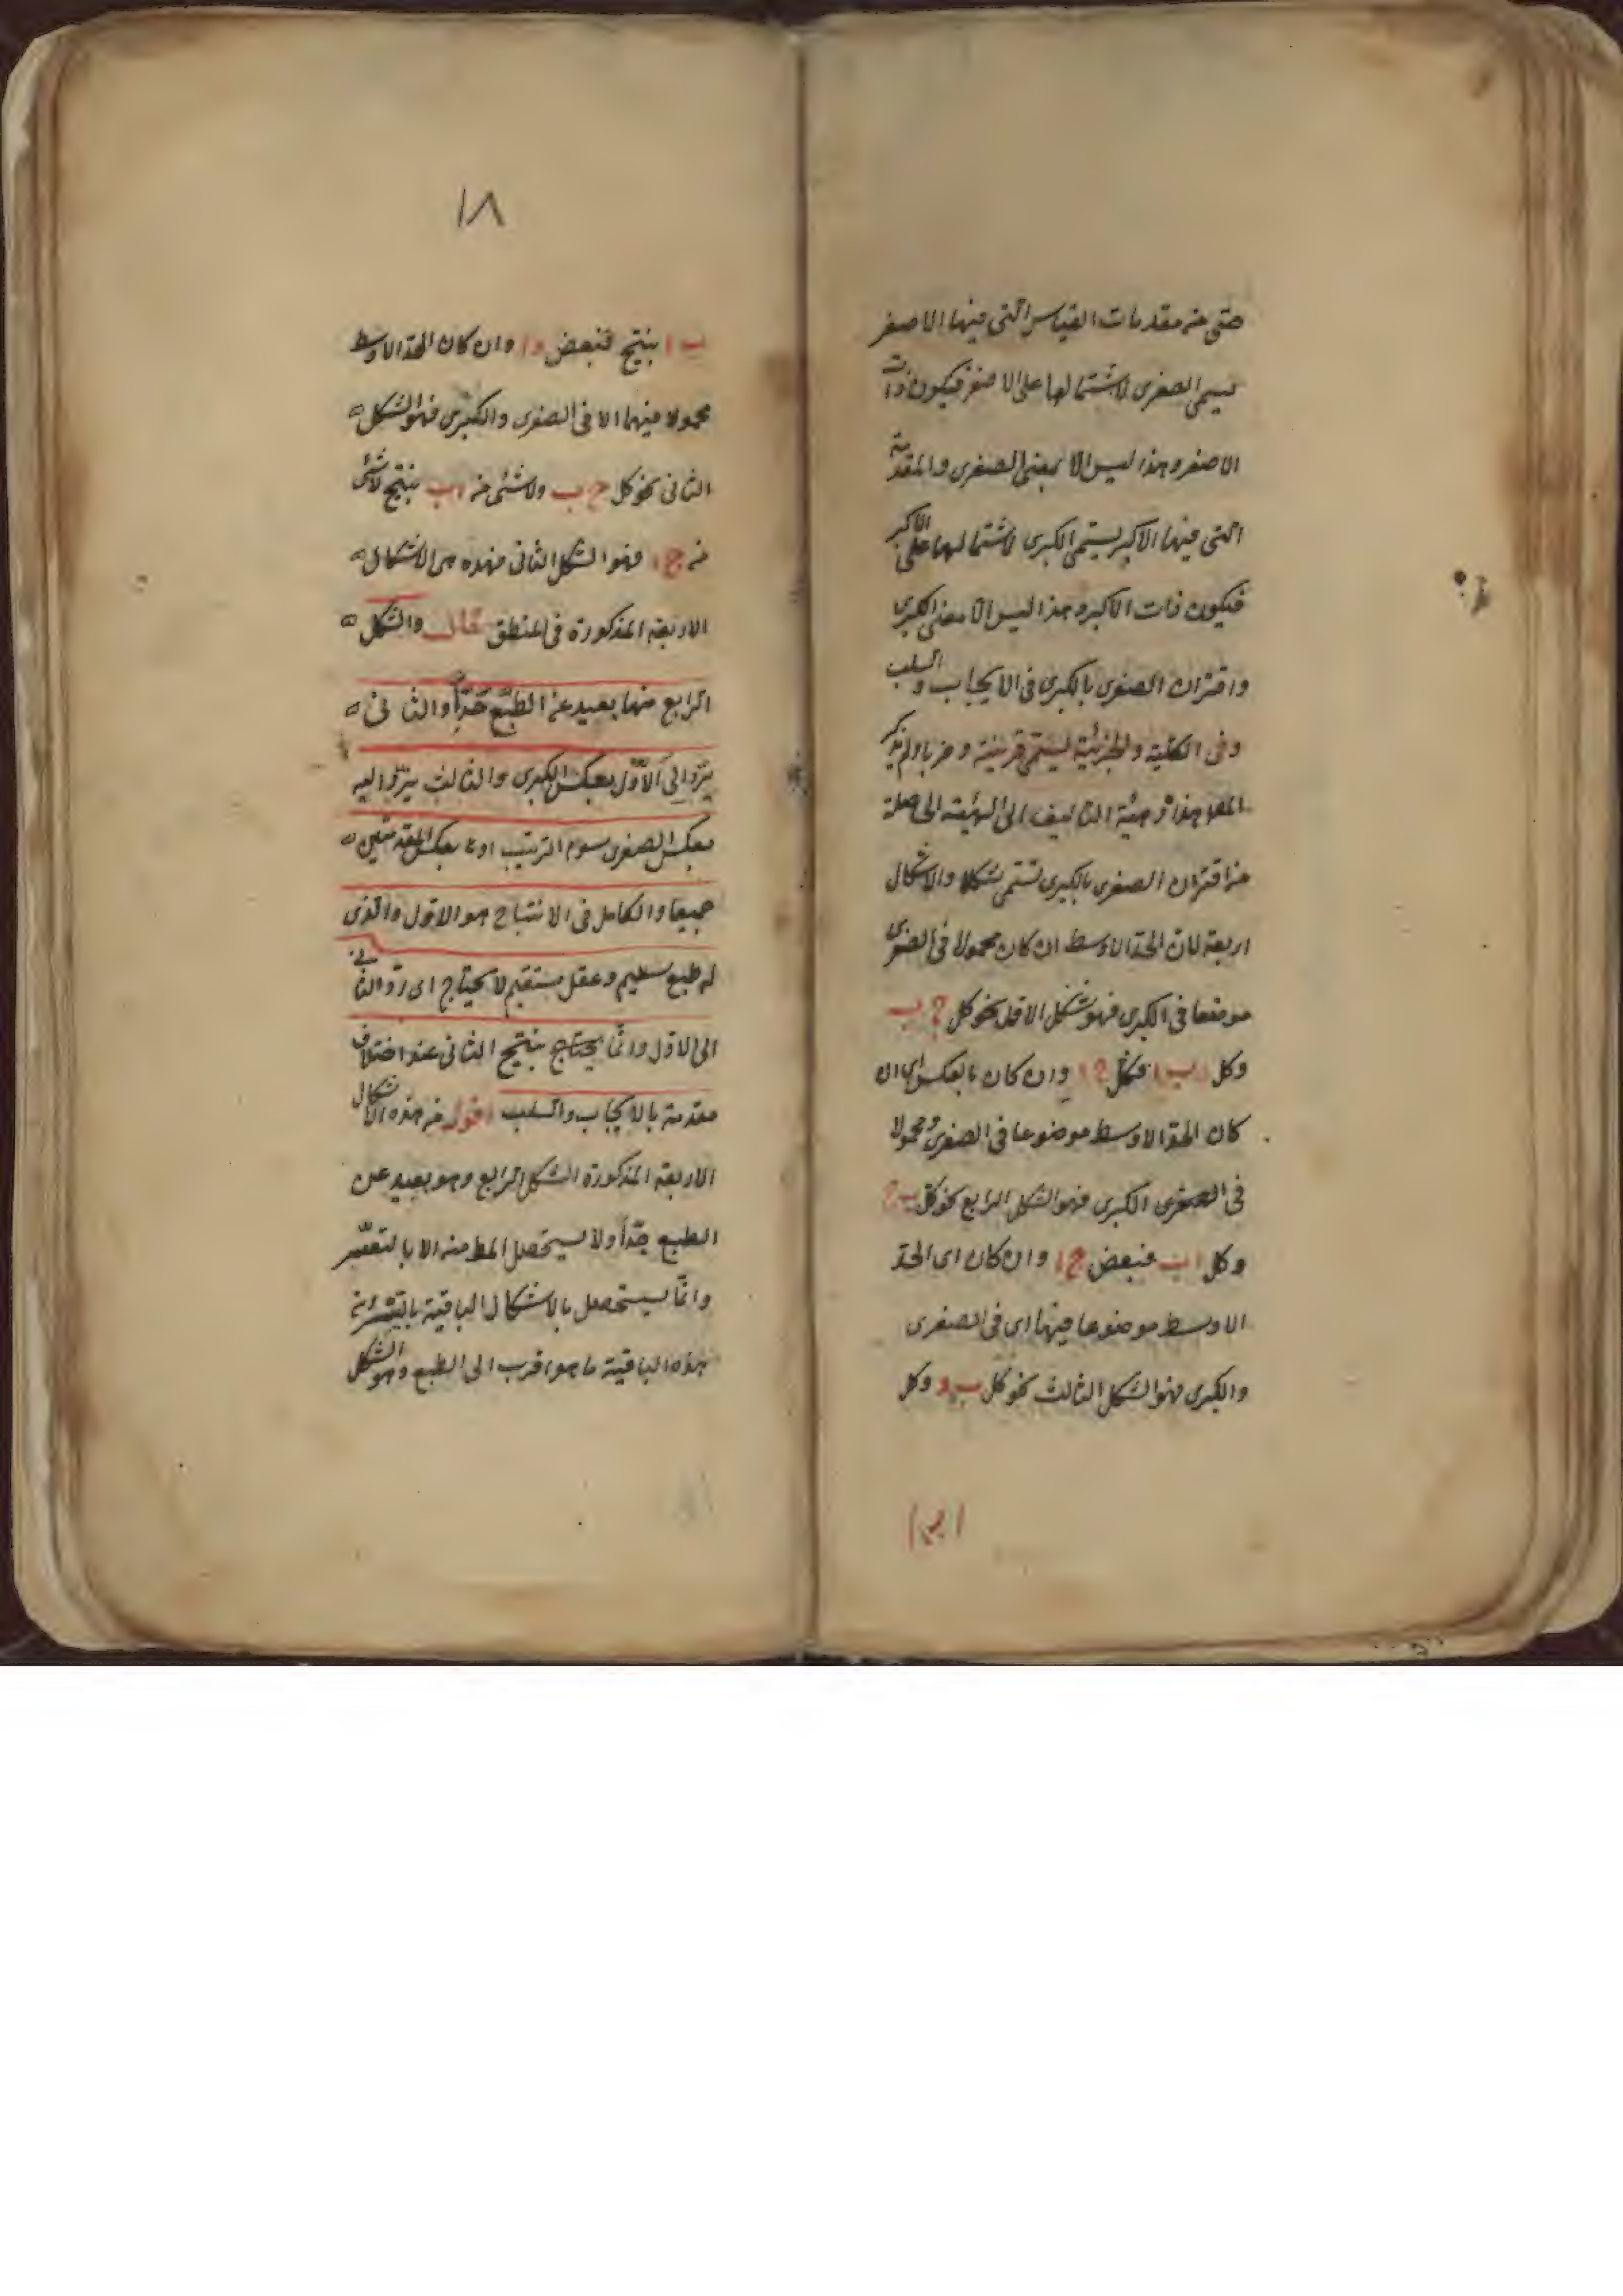 حتى من مقدمات القياس التى فيها الاصغر
يسمى الصغرى لاشتمالها على الاصغر فيكون ذات
الاصغر وهذا ليس الا بمعنى الصغرى والمقدمة
التى فيها الاكبر يسمى الكبرى لاشتمالها على الاكبر
فيكون ذات الاكبر وهذا ليس الا معنى الكبرى
واقتران الصغرى بالكبرى فى الايجاب والسلب
وفى الكلية والجزئية يسمى قرينة وضربا ولم يذكر
المص هذا وهيئة التاليف اى الهيئة الحاصلة
من اقتران الصغرى بالكبرى تسمى شكلا والاشكال
اربعة لان الحد الاوسط ان كان محمولا فى الصغرى
موضعا فى الكبرى فهو شكل الاول نحو كل ج ب
وكل ب ا فكل ج ا وان كان بالعكس اى ان
كان الحد الاوسط موضوعا فى الصغرى ومحمولا
فى الكبرى فهو الشكل الرابع نحو كل ب ج
وكل ا ب فبعض ج ا وان كان اى الحد
الاوسط موضوعا فيهما اى فى الصغرى
والكبرى فهو الشكل الثالث نحو كل ب د وكل
١٨
ب ا ينتج فبعض د ا وان كان الحد الاوسط
محمولا فيهما الا فى الصغرى والكبرى فهو الشكل
الثانى نحو كل ج ب ولا شئ من ا ب ينتج لا شئ
من ج ا فهو الشكل الثانى فهذه هى الاشكال
الاربعة المذكورة فى المنطق قال والشكل
الرابع منها بعيد عن الطبع جدا والثانى
يرد الى الاول بعكس الكبرى والثالث يرد اليه
بعكس الصغرى الترتيب او بعكس المقدمتين
جميعا والكامل فى الانتاج هو الاول والذى
له طبع سليم وعقل مستقيم لا يحتاج اى رد الثانى
الى الاول وانما يحتاج ينتج الثانى عند اختلاف
مقدمة بالايجاب والسلب اقول من هذه الاشكال
الاربعة المذكورة الشكل الرابع وهو بعيد عن
الطبع جدا ولا يستحصل المط منه الا بالتعسر
وانما يستحصل بالاشكال الباقية
هذه الباقية ما هو اقرب الى الطبع وهو الشكل